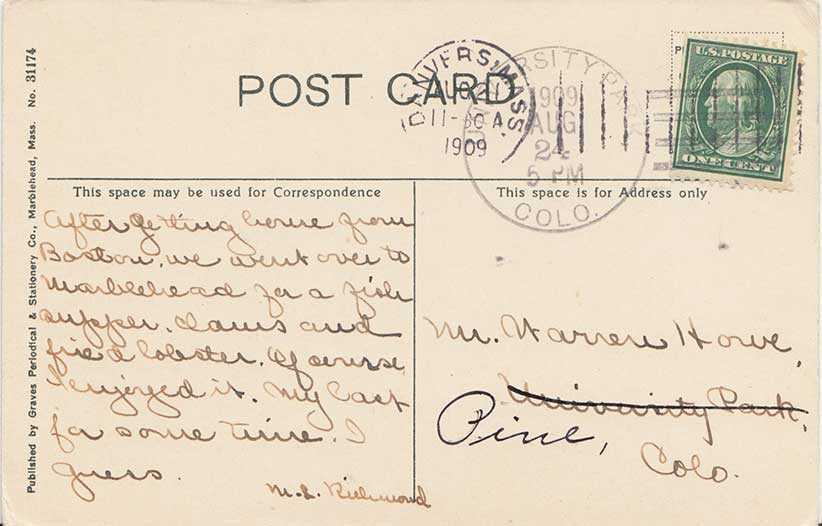 POST CARD
DANVERS, MASS.
AUG 21
11-30 A
1909
UNIVERSITY PARK
1909
AUG
24
5 PM
COLO.
U.S. POSTAGE
ONE CENT
This space may be used for Correspondence
This space is for Address only
After getting home from
Boston, we went over to
Marblehead for a fish
supper. clams and
fried lobster. Of course
I enjoyed it. My last
for some time. I
guess.
M. L. Richmond
Mr. Warren Howe,
University Park,
Pine,
Colo.
Published by Graves Periodical & Stationery Co., Marblehead, Mass. No. 31174